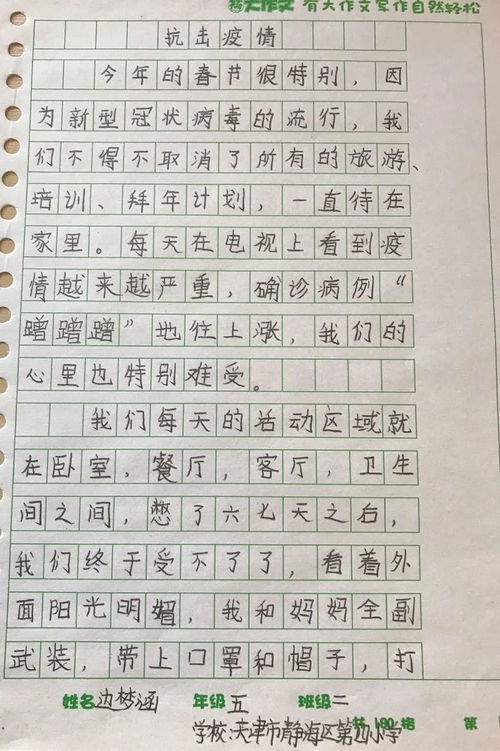 大作文 有大作文写作自然轻松
抗击疫情
今年的春节很特别，因
为新型冠状病毒的流行，我
们不得不取消了所有的旅游、
培训、拜年计划，一直待在
家里。每天在电视上看到疫
情越来越严重，确诊病例“
蹭蹭蹭”地往上涨，我们的
心里也特别难受。
我们每天的活动区域就
在卧室，餐厅，客厅，卫生
间之间，憋了六七天之后，
我们终于受不了了，看着外
面阳光明媚，我和妈妈全副
武装，带上口罩和帽子，打
姓名边梦涵 年级五 班级二
学校:天津市静海区第四小学
共180格 第